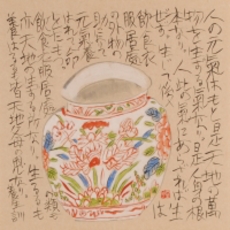 人の元氣はもと是天地の萬
物を生ずる氣なり是人身の根
本なり人此の氣にあらざれば生
ぜず生じて後は
飲食衣
服居處
の外物の
元氣養
はれて命
飲食衣服居處の類も
亦天地の生ずる所なり生るるも
養はるるも皆天地父母の恩なり養生訓